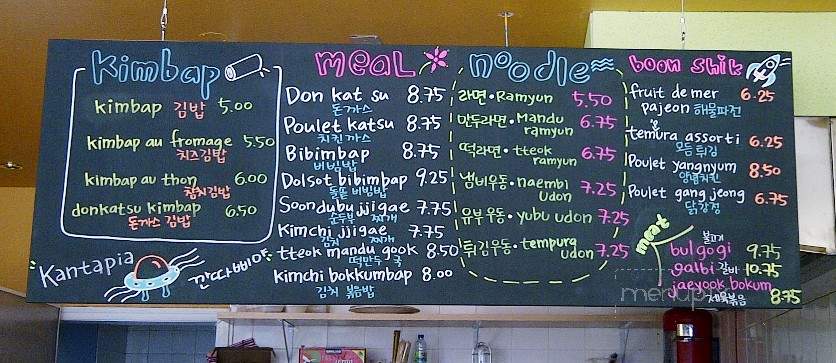 Kimbap
kimbap 김밥 5.00
kimbap au fromage 5.50
치즈김밥
kimbap au thon 6.00
참치김밥
donkatsu kimbap 6.50
돈까스 김밥
Kantapia
깐따삐야
meal
Don kat su 8.75
돈까스
Poulet katsu 8.75
치킨까스
Bibimbap 8.75
비빔밥
Dolsot bibimbap 9.25
돌솥 비빔밥
Soondubu jjigae 7.75
순두부 찌개
Kimchi jjigae 7.75
김치 찌개
tteok mandu gook 8.50
떡만두국
kimchi bokkumbap 8.00
김치 볶음밥
noodle
라면 · Ramyun 5.50
만두라면 · Mandu ramyun 6.75
떡라면 · tteok ramyun 6.75
냄비우동 · naembi udon 7.25
유부우동 · yubu udon 7.25
튀김우동 · tempura udon 7.25
boon shik
fruit de mer 6.25
pajeon 해물파전
temura assorti 6.25
모듬튀김
Poulet yangnyum 8.50
양념치킨
Poulet gang jeong 6.75
닭강정
meat
불고기
bulgogi 9.75
galbi 갈비 10.75
jaeyook bokum
제육볶음 8.75
menupix